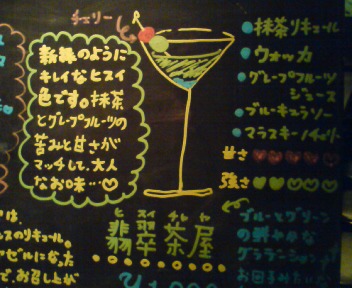 チェリー
新緑のように
キレイなヒスイ
色ですの抹茶
とグレープフルーツの
苦みと甘さが
マッチして、大人
なお味…♡
抹茶リキュール
ウォッカ
グレープフルーツ
ジュース
ブルーキュラソー
マラスキーノチェリー
甘さ
強さ
ヒ スイ チャ ヤ
翡翠茶屋
ブルーとグリーン
の鮮やかな
グラデーション
スのリキュール。
ゼルになった
で、お召し上が